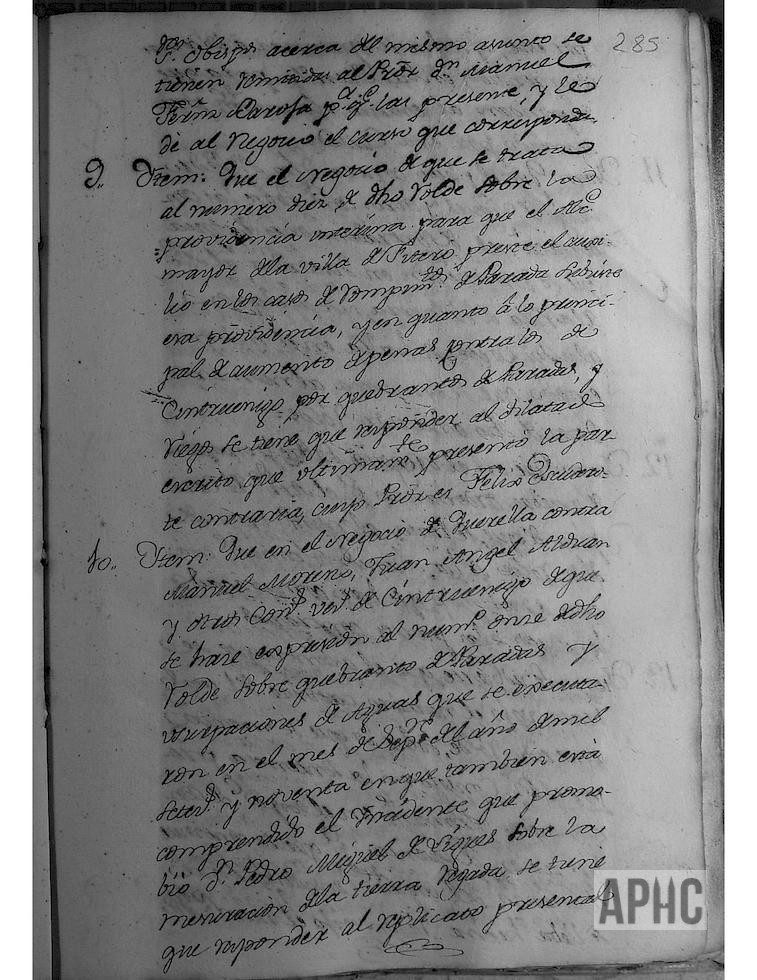 285
Sres. Obispos acerca del mismo asunto se
tienen remitidas al Pror. Dn. Manuel
Fermn. Barosa pa. qe. las presente, y le
dé al Negocio el curso que corresponda.
9.. Item: Que el Negocio de que se trata
al numero diez de dho Rolde sobre la
providencia interina para que el Alce.
mayor de la villa de Fitero preste el auxi-
lio en los casos de rompimtos. de Parada
era providencia, y en quanto à lo princi-
pal de aumento de penas contra los de
Cintruenigo por quebrantos de Paradas, y
Riegos se tiene que responder al dilatado
escrito que ultimamte. presentó la par-
te contraria, cuyo Pror es Felix Escudero.
10.. Item: Que en el Negocio de Querella contra
Manuel Moreno, Juan Angel Alduan
y otros Cons. vecs. de Cintruenigo de que
se hace expresion al numo. onze de dho
Rolde sobre quebranto de Paradas y
ocupaciones de Aguas que se executa-
ron en el mes de Sepre. del año de mil
setecs. y noventa en que tambien está
comprendido el Yncidente que promo-
bió Dn. Pedro Miguel de Vigues sobre la
mesuracion de la tierra Regada, se tiene
que responder al replicato presental
APHC